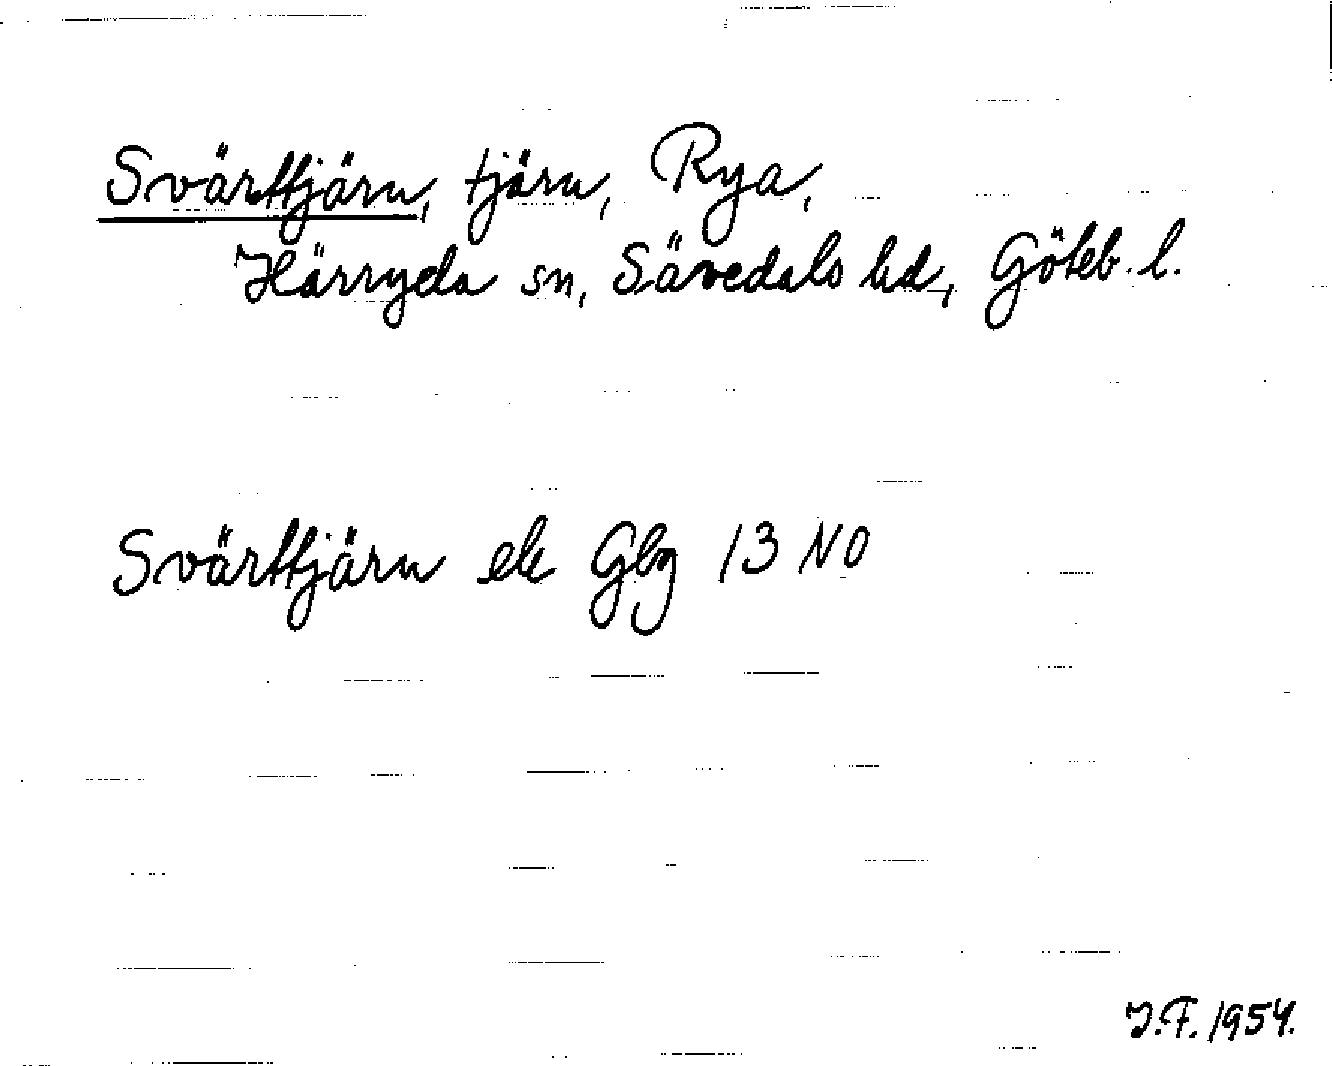 Svärttjärn, tjärn, Rya,
Härryda sn, Sävedals hd, Göteb. l.
Svärttjärn ek Gbg 13 NO
J.F. 1954.